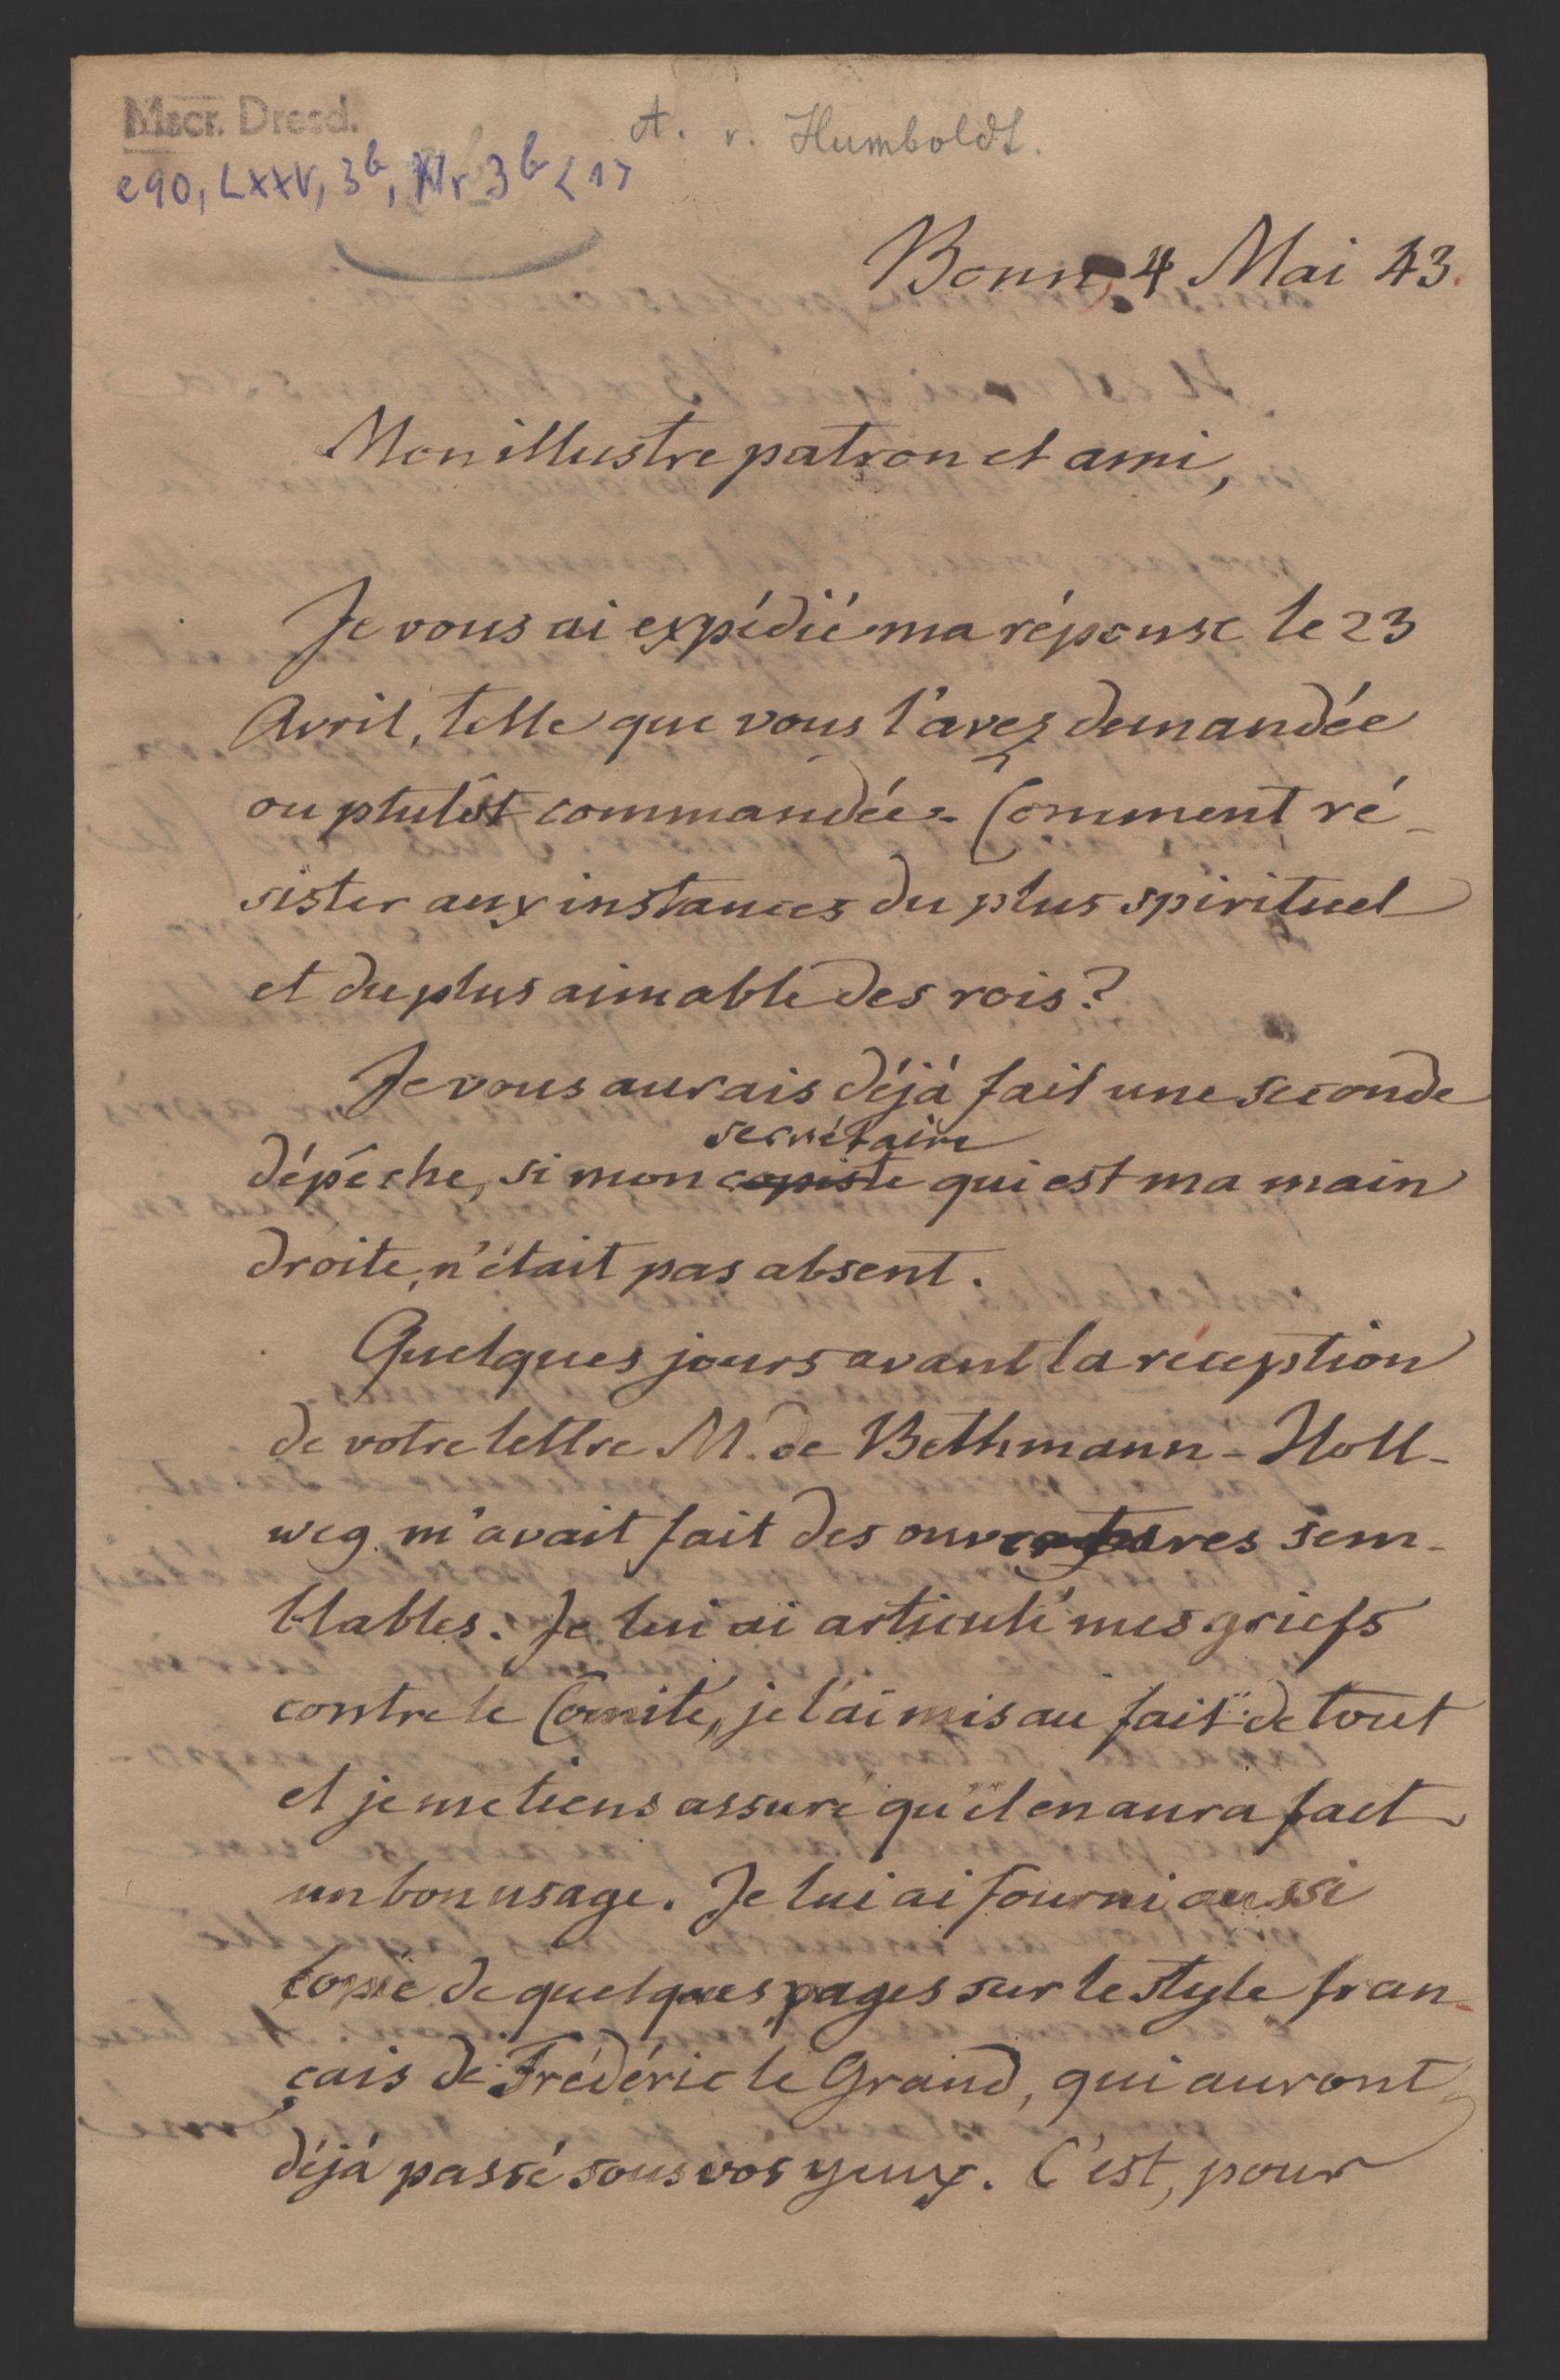 Mscr. Dresd.
e90, LXXV, 3b, Nr 3b <17
A. v. Humboldt.
Bonn, 4 Mai 43.
Mon illustre patron et ami,
Je vous ai expédié ma réponse le 23
Avril, telle que vous l'avez demandée
ou plutôt commandée. Comment ré-
sister aux instances du plus spirituel
et du plus aimable des rois?
Je vous aurais déjà fait une seconde
secrétaire
dépêche, si mon copiste qui est ma main
droite, n'était pas absent.
Quelques jours avant la réception
de votre lettre M. de Bethmann-Holl-
weg m'avait fait des ouvertures sem-
blables. Je lui ai articulé mes griefs
contre le Comité, je l'ai mis au fait de tout
et je me tiens assuré qu'il en aura fait
un bon usage. Je lui ai fourni aussi
copie de quelques pages sur le style fran-
çais de Frédéric le Grand, qui auront
déjà passé sous vos yeux. C'est, pour